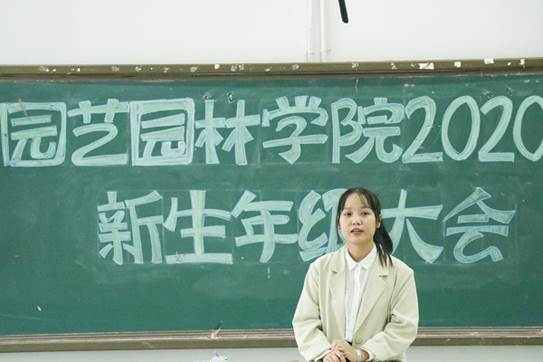 园艺园林学院2020
新生年级大会